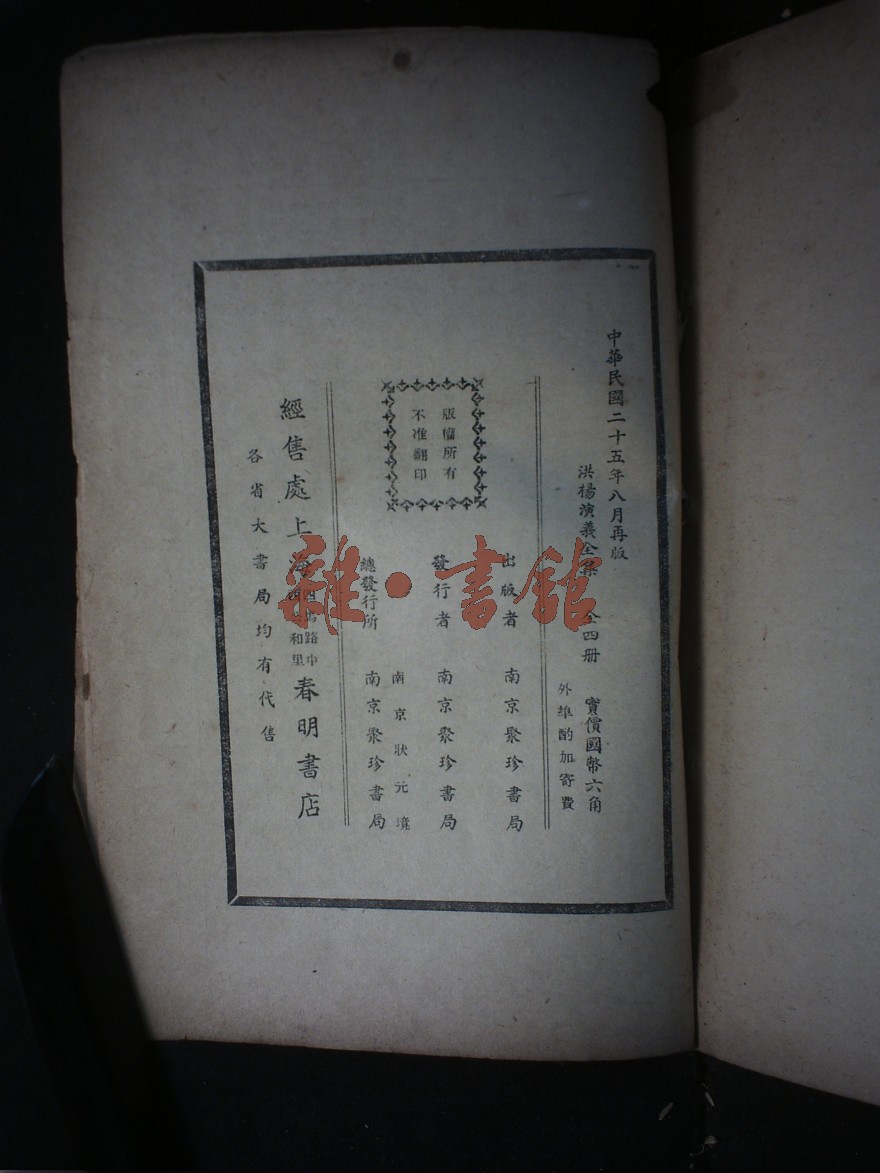 中華民國二十五年八月再版
洪楊演義全集 全四冊 實價國幣六角
外埠酌加寄費
出版者 南京聚珍書局
發行者 南京聚珍書局
版權所有
不准翻印
南京狀元境
總發行所 南京聚珍書局
經售處上海
路中
和里
春明書店
各省大書局均有代售
雜·書館